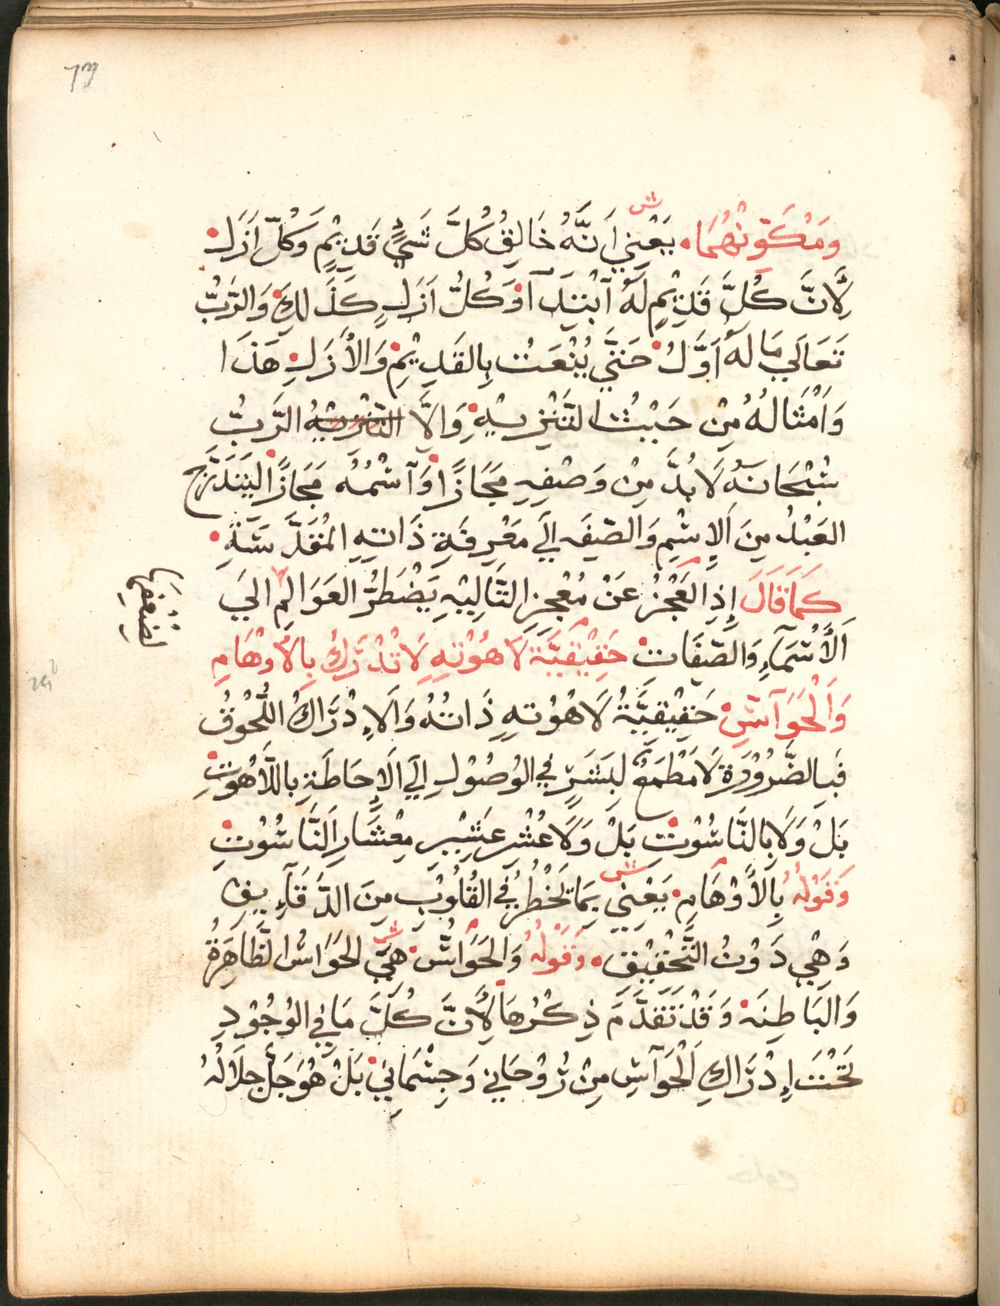 73
وَمُكَوِّنُهُمَا۰ يَعْنِي اَنَّهُ خَالِقُ كُلَّ شَيْءٍ قَدِيْمٍ وَكُلّ اَزَلِ
لِأَنَّ كُلَّ قَدِيْمٍ لَهُ آبْتِدَآ وَكُلُّ اَزَلٍ كَذَلِكَ وَالرَّبُّ
تَعَالَي مَا لَهُ اَوَّلُ حَتَّي يُنْعَتُ بِالقَدِيْمِ وَالأَزَلِ هَذَا
وَاَمْثَالُهُ مِنْ حَيْثُ التَنْزِيْهِ وَاِلَّا التنزيه الرَبُّ
سُبْحَانَهُ لَابُدَّ مِنْ وَصْفِهِ مَجَازًا وَآسْمُهُ مَجَازًا لِيَتَدَرَّج
العَبْدُ مِنَ اَلاِسْمِ وَالصّفَه اِلَي مَعْرِفَةِ ذَاتِهِ المُقَدَّسَةِ
كَمَا قَالَ إِذِ العَجْزُ عَنْ مُعْجِزِ التَالِيْهِ يَضْطَرُّ العَوَالِمِ اِلَيَ
لِضُعْفِهَا
اَلأَسْمَآءِ وَالصّفَاتِ حَقِيْقِيَّةَ لَاهُوْتِهِ لَا تُدْرَكُ بِالأَوْهَامِ
وَالْحَوَآسِّ حَقِيْقِيَّةُ لَاهُوْتِهِ ذَاتُهُ وَالاِدْرَاكُ اللُّحُوْقُ
فَبِالضَّرُوْرَةِ لَا مَطْمَعٌ لِبَشَرٍ فِي الوُصُوْلِ اِلَي الَاِحَاطَةِ بِاللَّاهُوتِ
بَلْ وَلَا بِالنَّاسُوْتِ بَلْ وَلَا عُشْرِ عَشِيْرِ مِعْشَارِ النَّاسُوْتِ
وَقَوْلُهُ بِالأَوْهَامِ يَعْنِي بِمَا تَخْطُرُ فِي القُلُوْبِ مِنَ الدَّقَآيِقِ
وَهْيِ دَوْنُ التَّحْقِيْقِ۰ وَقَوْلُهُ وَالحَوَاسُّ هِيَ الحَوَاسُّ الظَّاهِرَةُ
وَالبَاطِنَه وَقَدْ تَقَدَّمَ ذِكْرُهَا لِأَنَّ كُلَّ مَا فِي الوُجُوْدِ
تَحْتَ اِدْرَاكِ الْحَوَآسِ مِنْ رُوْحَانِي وَجِسْمَانِي بَلْ هُوَ جَلَّ جَلَالُهُ